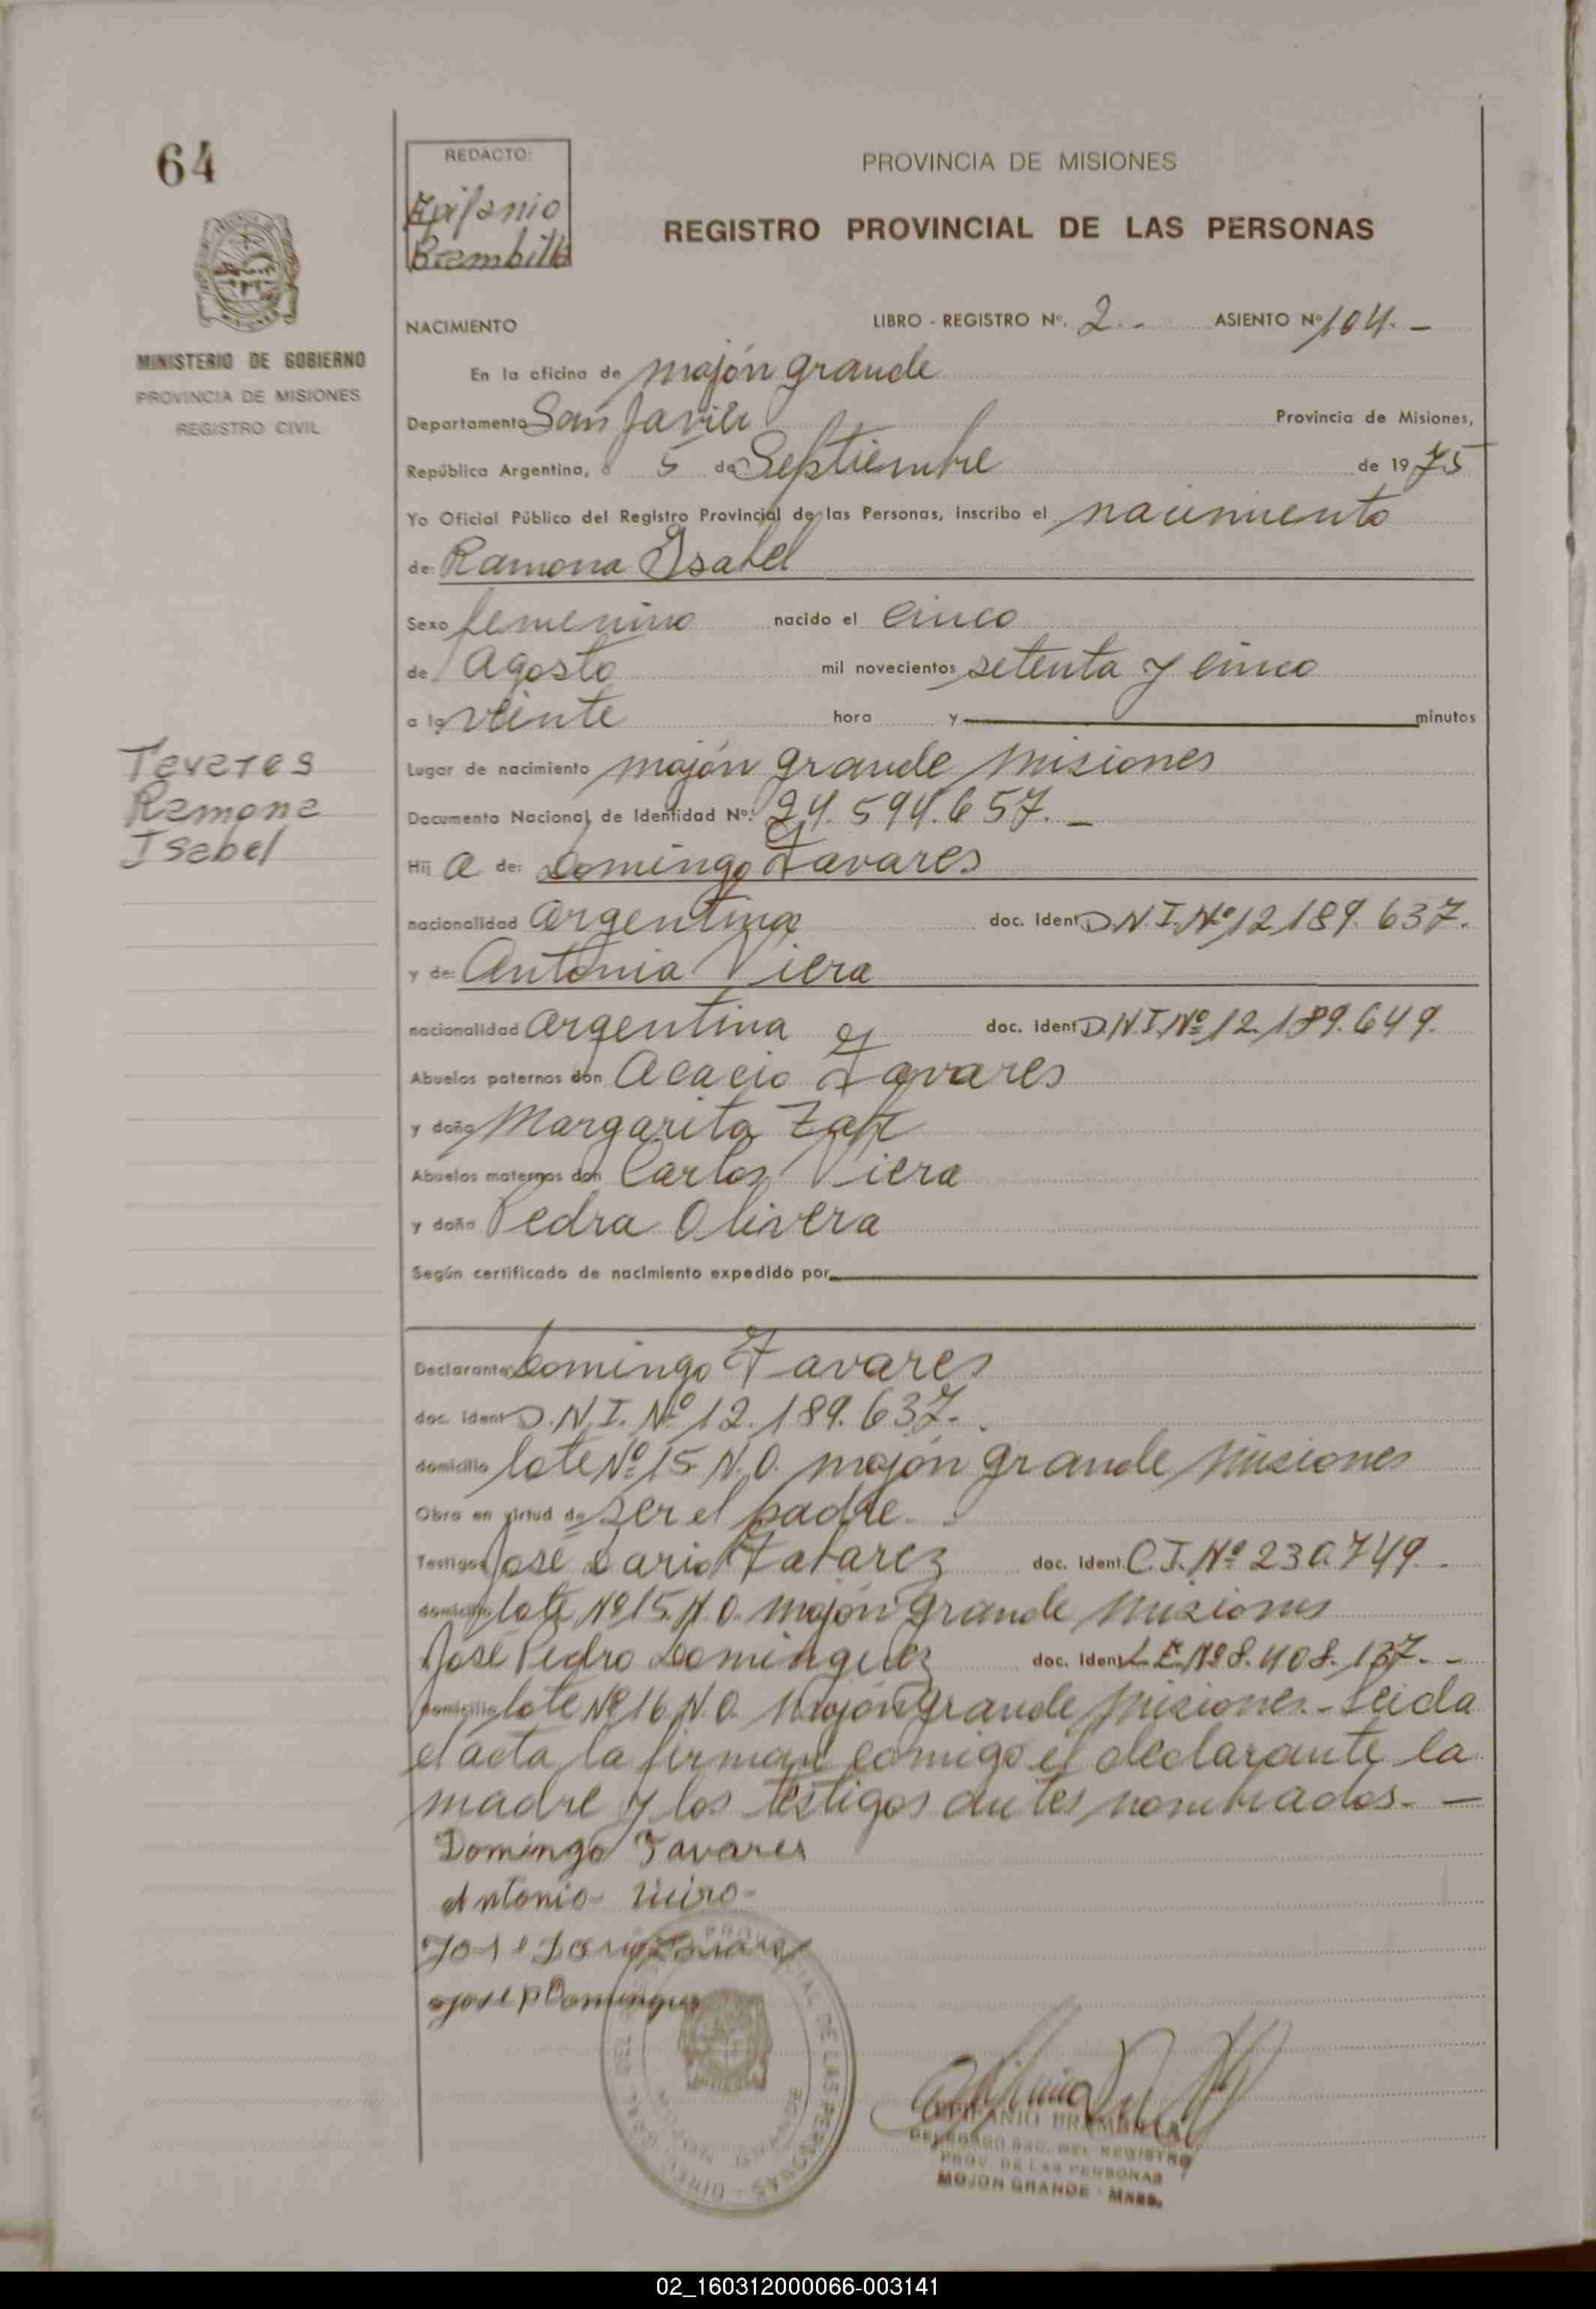 64
REDACTO:
Epifanio
Brambilla
PROVINCIA DE MISIONES
REGISTRO PROVINCIAL DE LAS PERSONAS
MINISTERIO DE GOBIERNO
PROVINCIA DE MISIONES
REGISTRO CIVIL
NACIMIENTO LIBRO - REGISTRO Nº. 2.- ASIENTO Nº 104.-
En la oficina de mojón grande
Departamento San Javier Provincia de Misiones,
República Argentina, a 5 de Septiembre de 1975
Yo Oficial Público del Registro Provincial de las Personas, inscribo el nacimiento
de: Ramona Isabel
Sexo femenino nacido el cinco
de Agosto mil novecientos setenta y cinco
a la veinte hora y minutos
Tavares
Ramona
Isabel
Lugar de nacimiento mojón grande misiones
Documento Nacional de Identidad Nº: 24.594.657.-
Hij a de: Domingo Tavares
nacionalidad argentina doc. Ident D.N.I. Nº 12.189.637.
y de: Antonia Viera
nacionalidad argentina doc. Ident D.N.I. Nº 12.189.649.
Abuelos paternos don Acacio Tavares
y doña Margarita
Abuelos maternos don Carlos Viera
y doña Pedra Olivera
Según certificado de nacimiento expedido por
Declarante Domingo Tavares
doc. Ident D.N.I. Nº 12.189.637.-
domicilio lote Nº 15 N.O. mojón grande misiones
Obra en virtud de ser el padre.-
Testigos José Dario Tabarez doc. Ident. C.I. Nº 230.749.-
domicilio lote Nº 15. N.O. mojón grande misiones
José Pedro Dominguez doc. Ident L.E. Nº 8.408.137.--
domicilio lote Nº 16 N.O. mojón grande misiones.- Leida
el acta la firman comigo el declarante la
madre y los testigos antes nombrados.-
Domingo Tavares
Antonia
José P Dominguez
EPIFANIO BRAMBILLA
DEL REGISTRO
PROV. DE LAS PERSONAS
MOJON GRANDE - MNES.
02_160312000066-003141